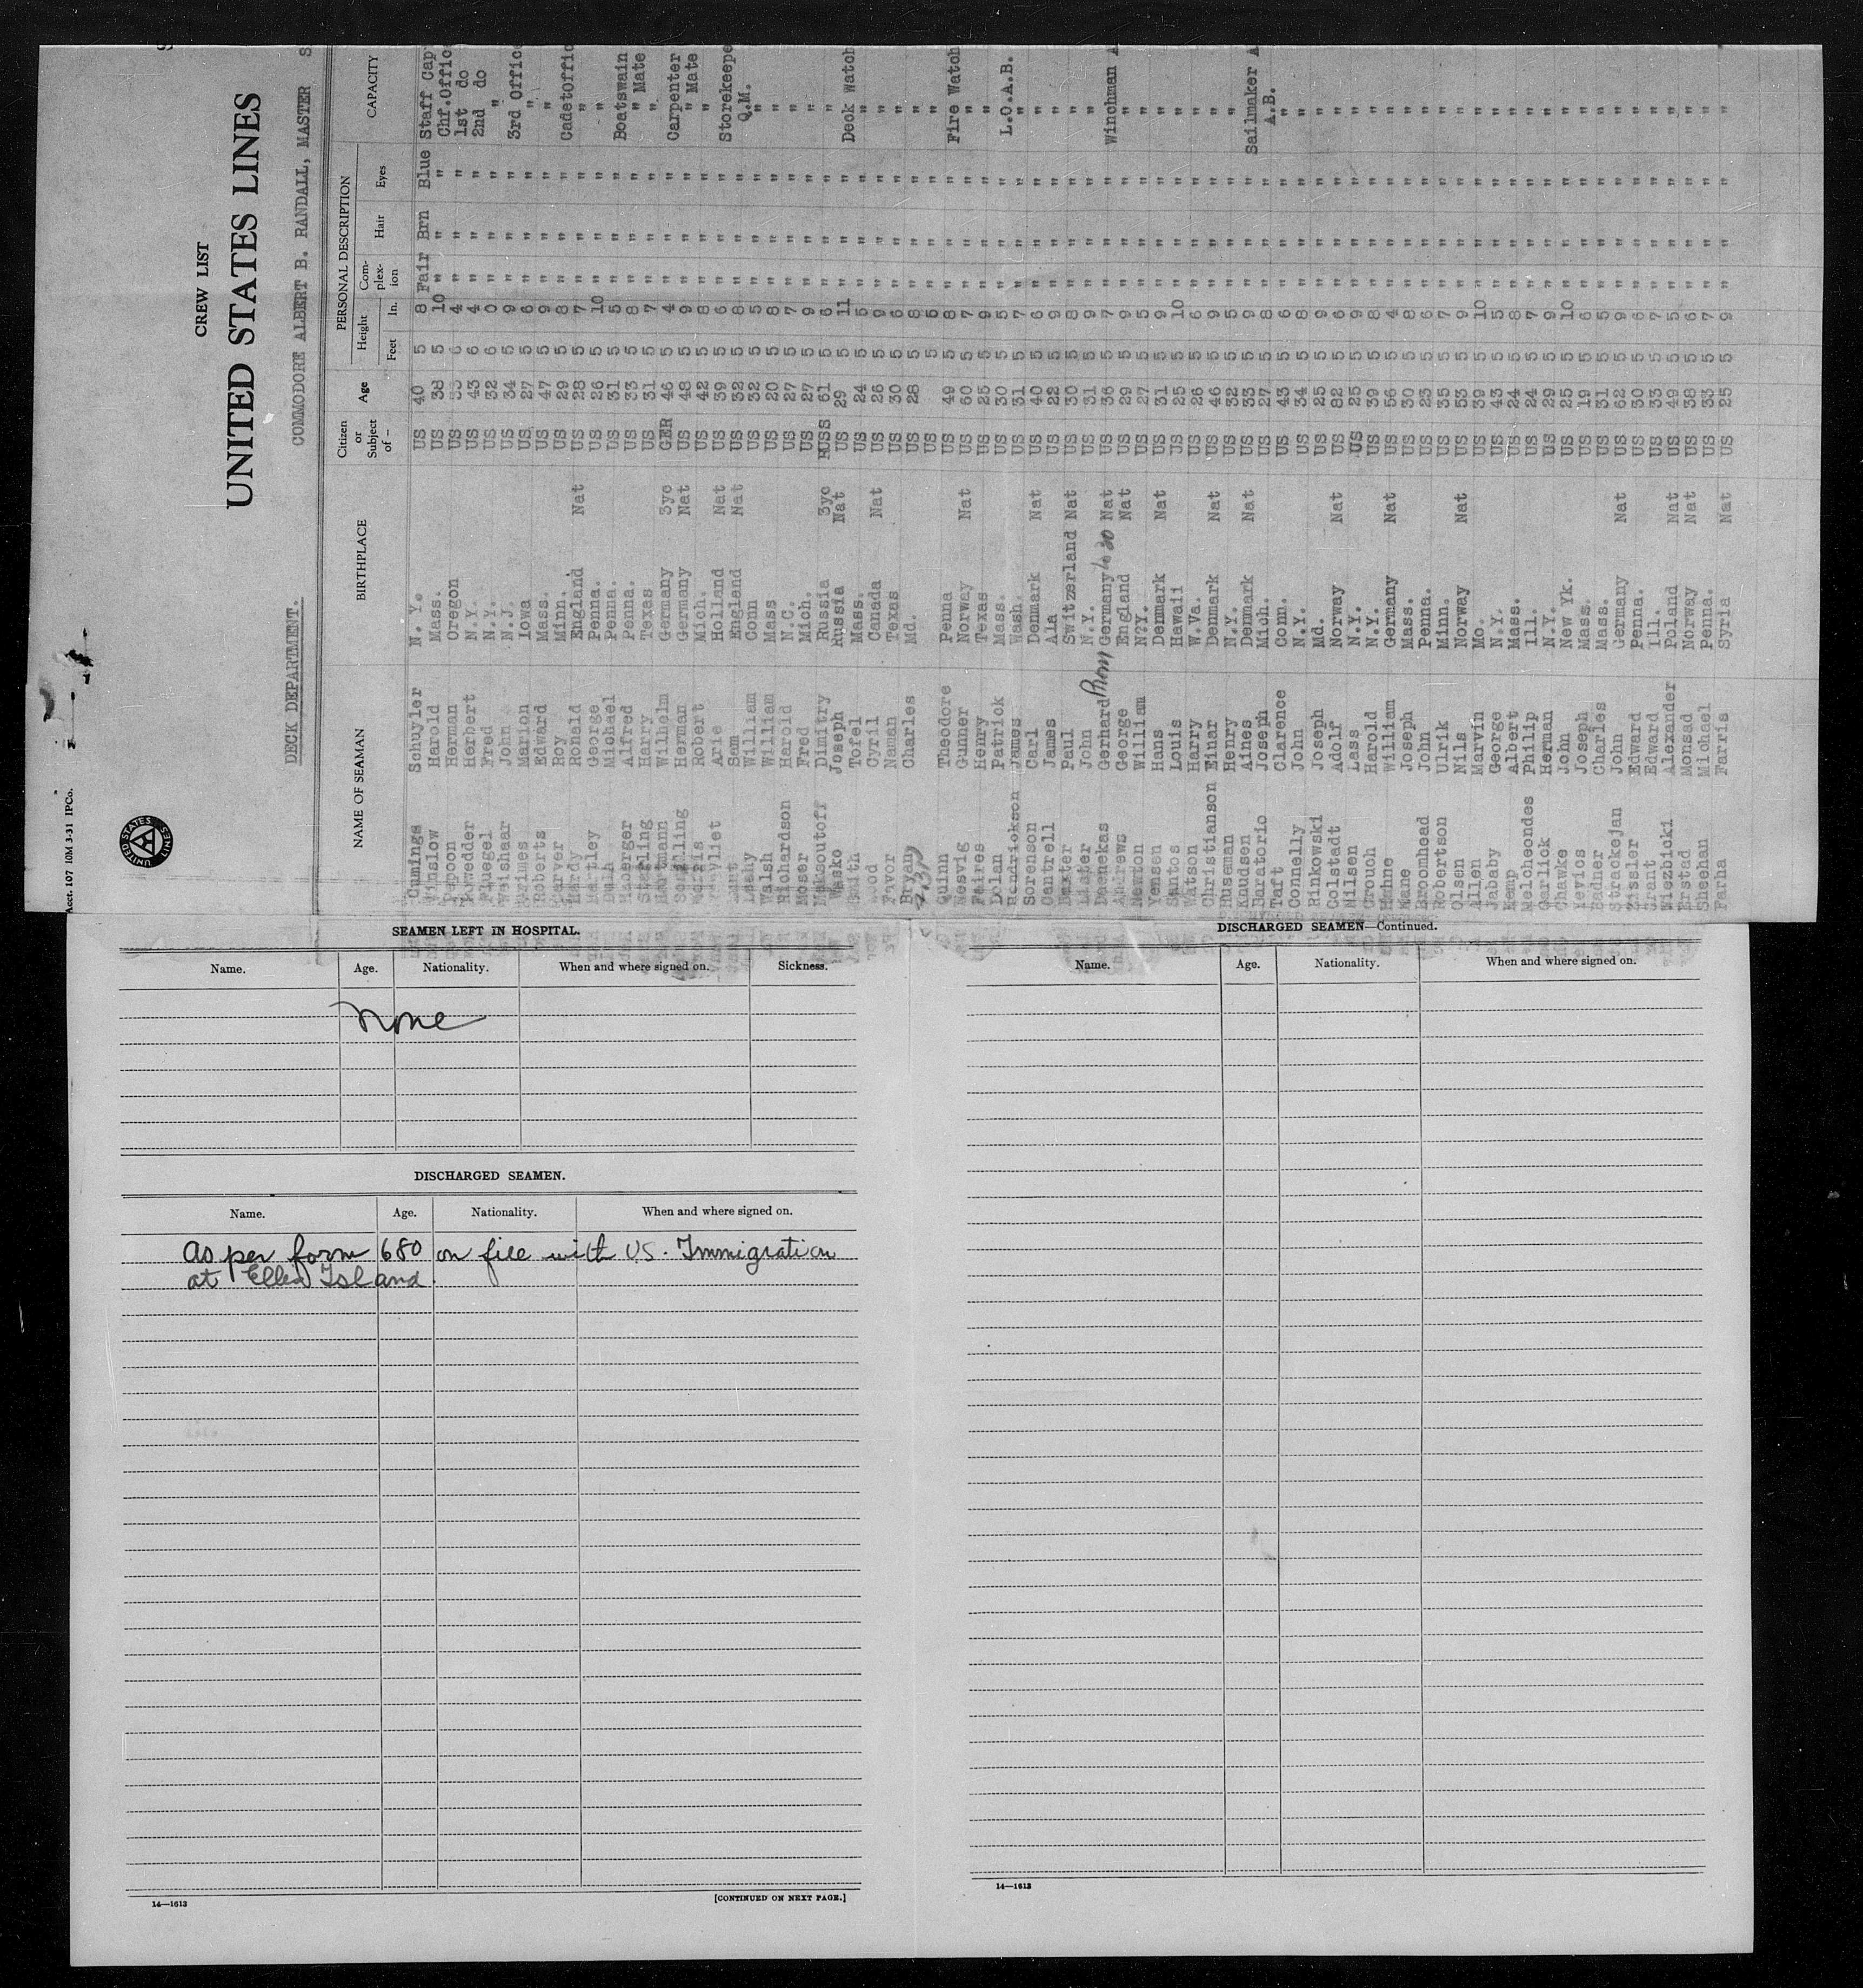 Acct. 107 10M 3-31 IPCo.
UNITED STATES LINES
CREW LIST
UNITED STATES LINES
DECK DEPARTMENT. COMMODORE ALBERT B. RANDALL, MASTER S
NAME OF SEAMAN BIRTHPLACE Citizen or Subject of – Age PERSONAL DESCRIPTION CAPACITY
Height Feet In. Com-plex-ion Hair Eyes
Cumings Schuyler N.Y. US 40 5 8 Fair Brn Blue Staff Cap
Winslow Harold Mass. US 38 5 10 " " " Chf.Offic
Pepoon Herman Oregon US 6 4 " " " 1st do
Powedder Herbert N.Y. US 43 6 4 " " " 2nd do
Pfluegel Fred N.Y. US 32 6 0 " " " "
Weishaar John N.J. US 34 5 9 " " " 3rd Office
Grymes Marion Iowa US 27 5 6 " " " "
Roberts Edward Mass. US 47 5 9 " " " "
Carver Roy Minn. US 29 5 8 " " " Cadetoffic
Hardy Ronald England Nat US 28 5 7 " " " "
Bartley George Penna. US 26 5 10 " " " "
Michael Penna. US 31 5 5 " " " Boatswain
Moberger Alfred Penna. US 33 5 8 " " " " Mate
Starling Harry Texas US 31 5 7 " " " "
Hartmann Wilhelm Germany 3yo GER 46 5 4 " " " Carpenter
Schilling Herman Germany Nat US 48 5 9 " " " " Mate
Morris Robert Mich. US 42 5 8 " " " "
Arie Holland Nat US 39 5 6 " " " Storekeepe
Sam England Nat US 32 5 8 " " " Q.M.
Leahy William Conn US 32 5 5 " " " "
Walsh William Mass US 20 5 8 " " " "
Richardson Harold N.C. US 27 5 7 " " " "
Moser Fred Mich. US 27 5 9 " " " "
Maksoutoff Dimitry Russia 3yo RUSS 61 5 6 " " " "
Wasko Joseph Russia Nat US 29 5 11 " " " Deck Watch
Smith Tofel Mass. US 24 5 5 " " " "
Wood Cyril Canada Nat US 26 5 9 " " " "
Favor Naman Texas US 30 5 6 " " " "
Bryan Charles Md. US 28 5 8 " " " "
US 5 6 " " " "
Quinn Theodore Penna US 49 5 8 " " " Fire Watch
Nesvig Gunner Norway Nat US 60 5 7 " " " "
Faires Henry Texas US 25 5 9 " " " "
Dolan Patrick Mass. US 30 5 5 " " " L.O.A.B.
Hendrickson James Wash. US 31 5 7 " " " "
Sorenson Carl Denmark Nat US 40 5 6 " " " "
Cantrell James Ala US 22 5 9 " " " "
Baxter Paul Switzerland Nat US 30 5 8 " " " "
Lister John N.Y. US 31 5 9 " " " "
Daenekas Gerhard Germany Nat US 36 5 7 " " " Winchman A
Andrews George England Nat US 29 5 9 " " " "
Newton William N?Y. US 27 5 5 " " " "
Yensen Hans Denmark Nat US 31 5 9 " " " "
Santos Louis Hawaii US 25 5 10 " " " "
Watson Harry W.Va. US 26 5 6 " " " "
Christianson Einar Denmark Nat US 46 5 9 " " " "
Huseman Henry N.Y. US 32 5 5 " " " "
Knudsen Aines Denmark Nat US 33 5 9 " " " Sailmaker A
Baratorio Joseph Mich. US 27 5 8 " " " A.B.
Taft Clarence Conn. US 43 5 6 " " " "
Connelly John N.Y. US 34 5 8 " " " "
Rinkowski Joseph Md. US 25 5 9 " " " "
Colstadt Adolf Norway Nat US 82 5 6 " " " "
Nilsen Lass N.Y. US 25 5 9 " " " "
Crouch Harold N.Y. US 39 5 8 " " " "
Hahne William Germany Nat US 56 5 4 " " " "
Kane Joseph Mass. US 30 5 8 " " " "
Broomhead John Penna. US 23 5 6 " " " "
Robertson Ulrik Minn. US 35 5 7 " " " "
Olsen Nils Norway Nat US 53 5 9 " " " "
Allen Marvin Mo. US 39 5 10 " " " "
Jababy George N.Y. US 43 5 5 " " " "
Kemp Albert Mass. US 24 5 8 " " " "
Melcheondes Philip Ill. US 24 5 7 " " " "
Garlick Herman N.Y. US 29 5 9 " " " "
Chawke John New Yk. US 25 5 10 " " " "
Yevics Joseph Mass. US 19 5 6 " " " "
Badner Charles Mass. US 31 5 5 " " " "
Strackejan John Germany Nat US 62 5 9 " " " "
Zissler Edward Penna. US 30 5 6 " " " "
Grant Edward Ill. US 33 5 7 " " " "
Wiezbicki Alexander Poland Nat US 49 5 5 " " " "
Erstad Monsad Norway Nat US 38 5 6 " " " "
Sheehan Michael Penna. US 33 5 7 " " " "
Farha Farris Syria Nat US 25 5 9 " " " "
SEAMEN LEFT IN HOSPITAL.
Name. Age. Nationality. When and where signed on. Sickness.
None
DISCHARGED SEAMEN.
Name. Age. Nationality. When and where signed on.
As per form 680 on file with U.S. Immigration
at Ellis Island.
14—1613
[CONTINUED ON NEXT PAGE.]
DISCHARGED SEAMEN—Continued.
Name. Age. Nationality. When and where signed on.
14—1613